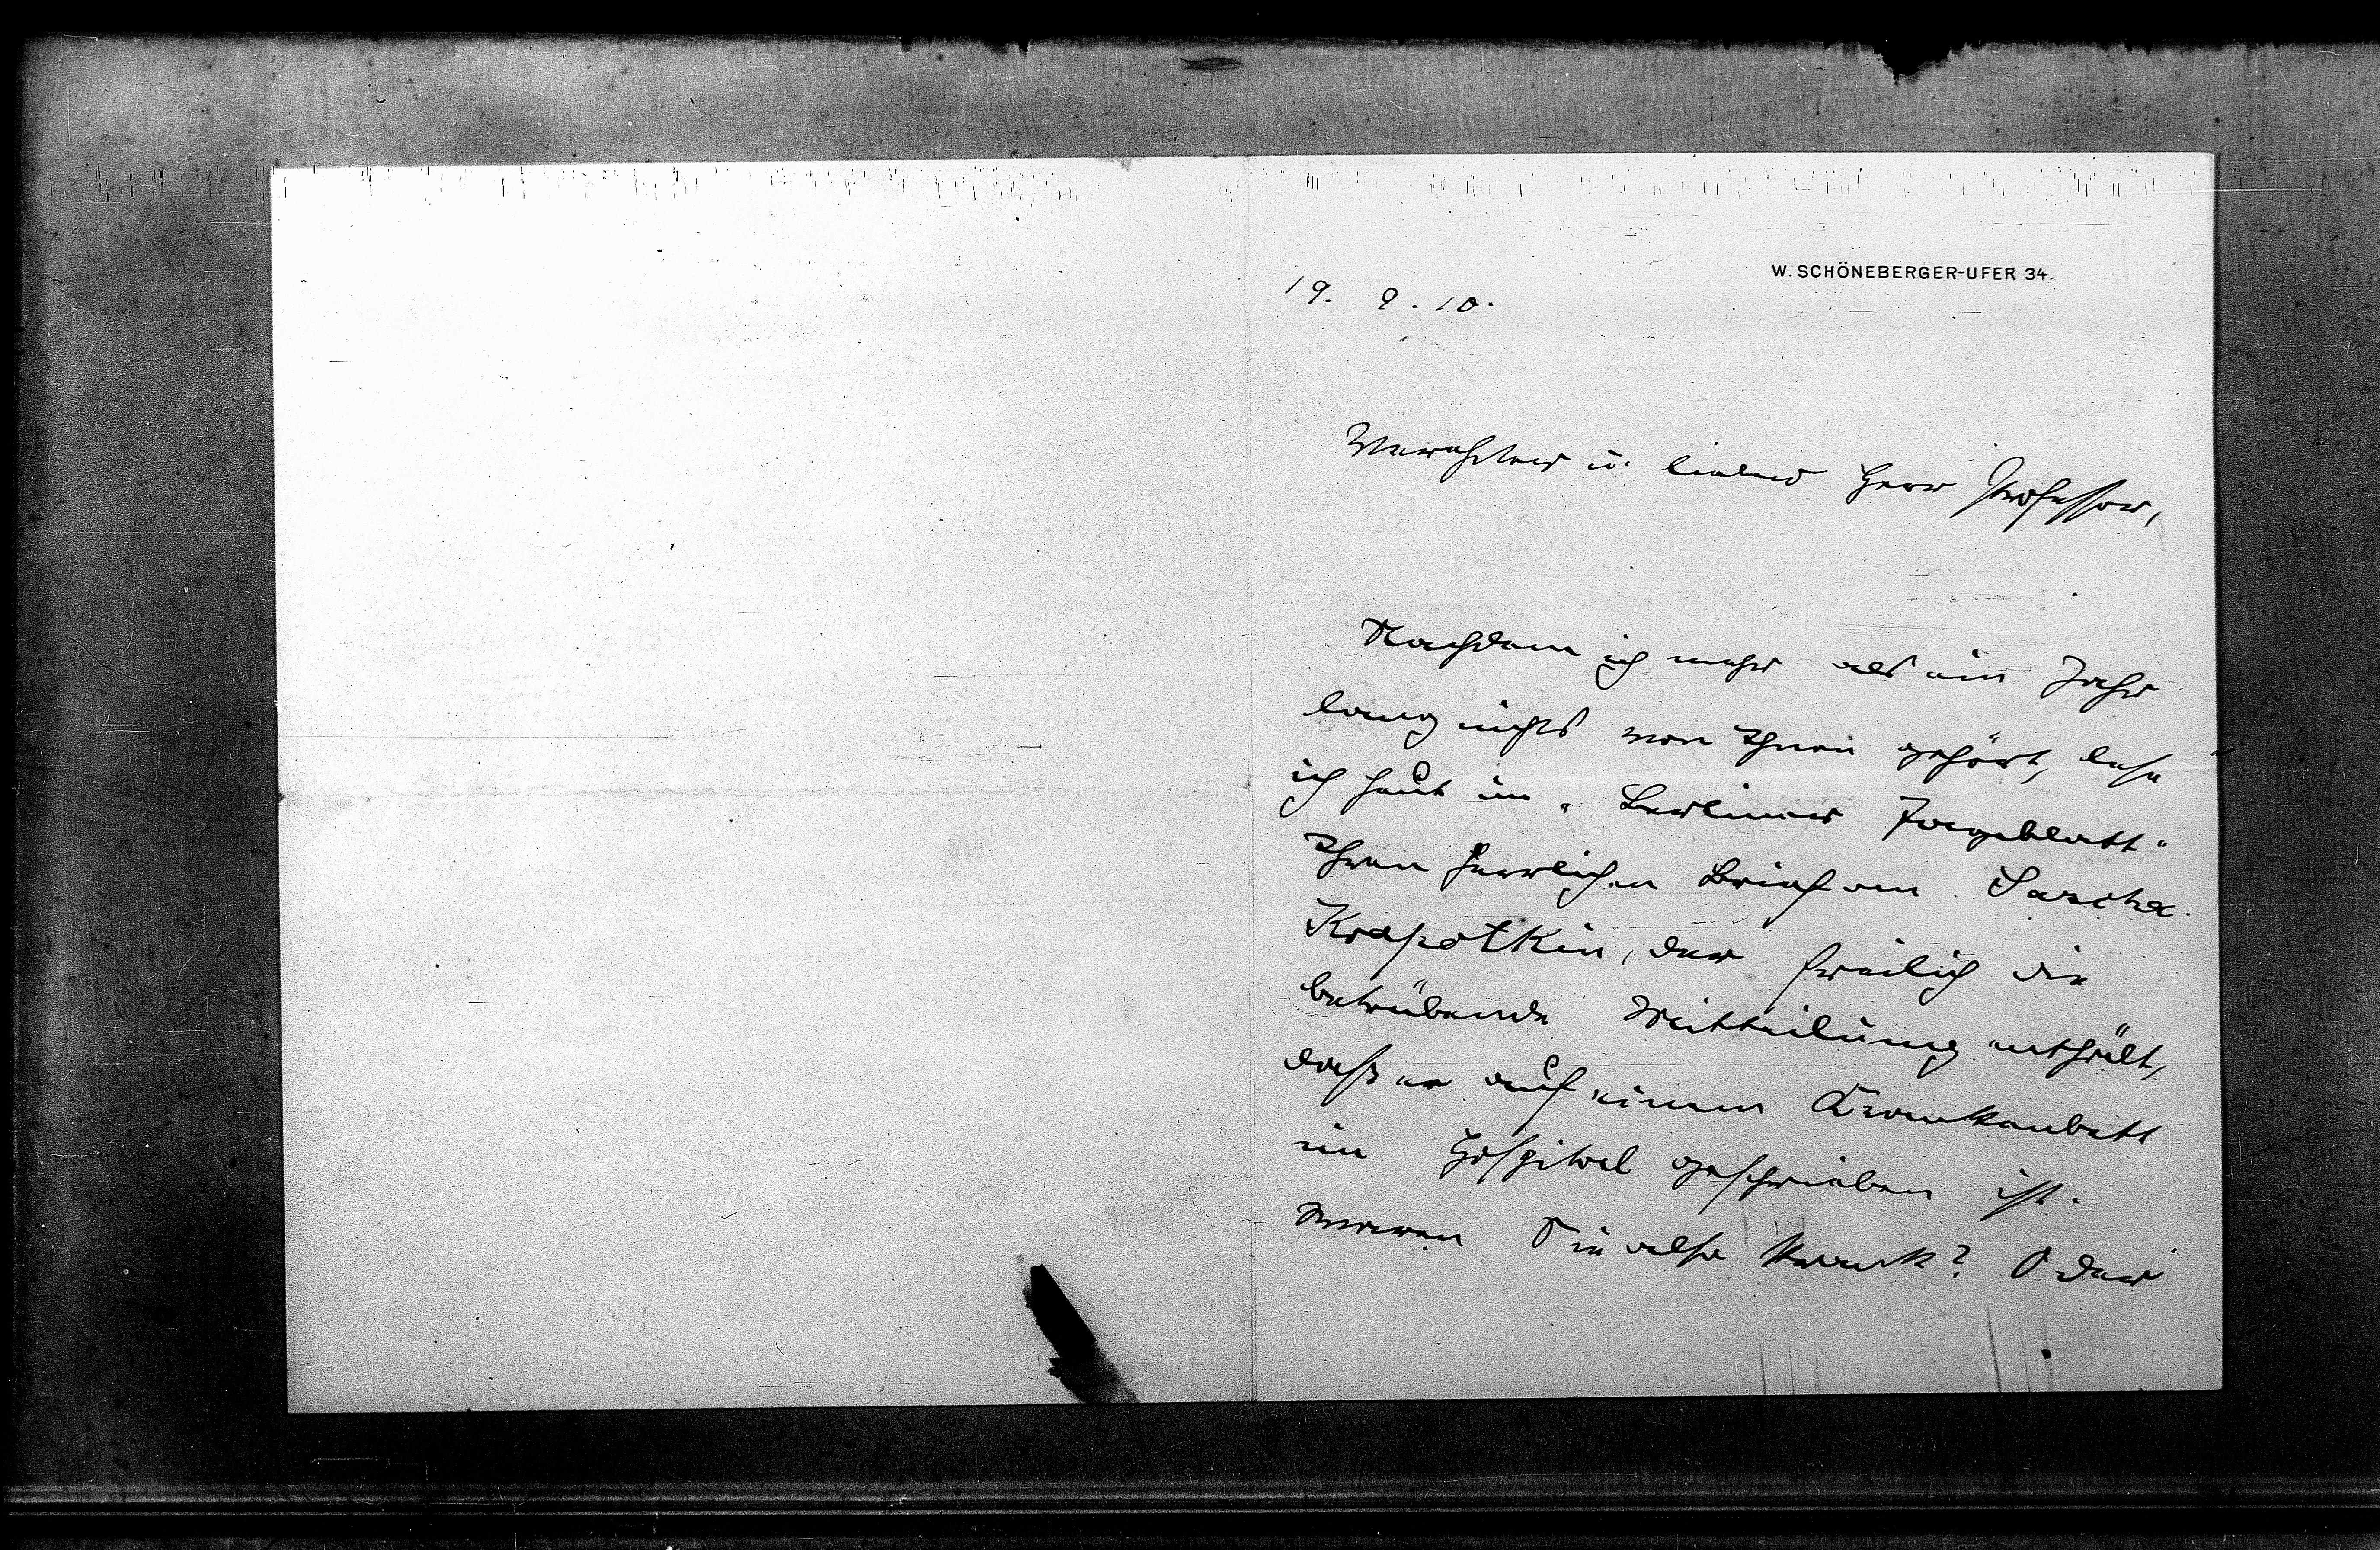 W. SCHÖNEBERGER-UFER 34.
19. 9. 10.
Verehrter u. lieber Herr Professor,
Nachdem ich mehr als ein Jahr
lang nichts von Ihnen gehört, lese
ich heut im „Berliner Tageblatt“
Ihren herrlichen Brief an Sascha
Krapotkin, der freilich die
betrübende Mitteilung enthält,
daß er auf einem Krankenbett
im Hospital geschrieben ist.
Waren Sie also krank? Oder